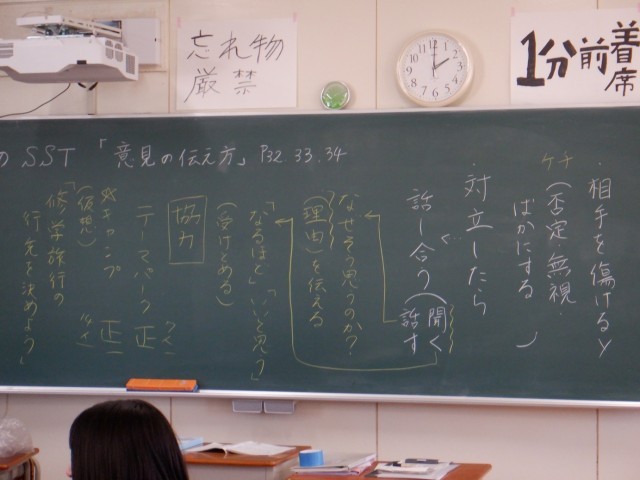 忘れ物
厳禁
1分前着席
SST「意見の伝え方」P32.33.34
・相手を傷ける
ケチ
(否定 無視・
ばかにする)
・対立したら
話し合う(聞く
話す
なぜそう思うのか?
(理由)を伝える
「なるほど」「いいと思う」
(受けとめる)
協力
テーマパーク 正
キャンプ 正
(仮想)
「修学旅行の
行先を決めよう」